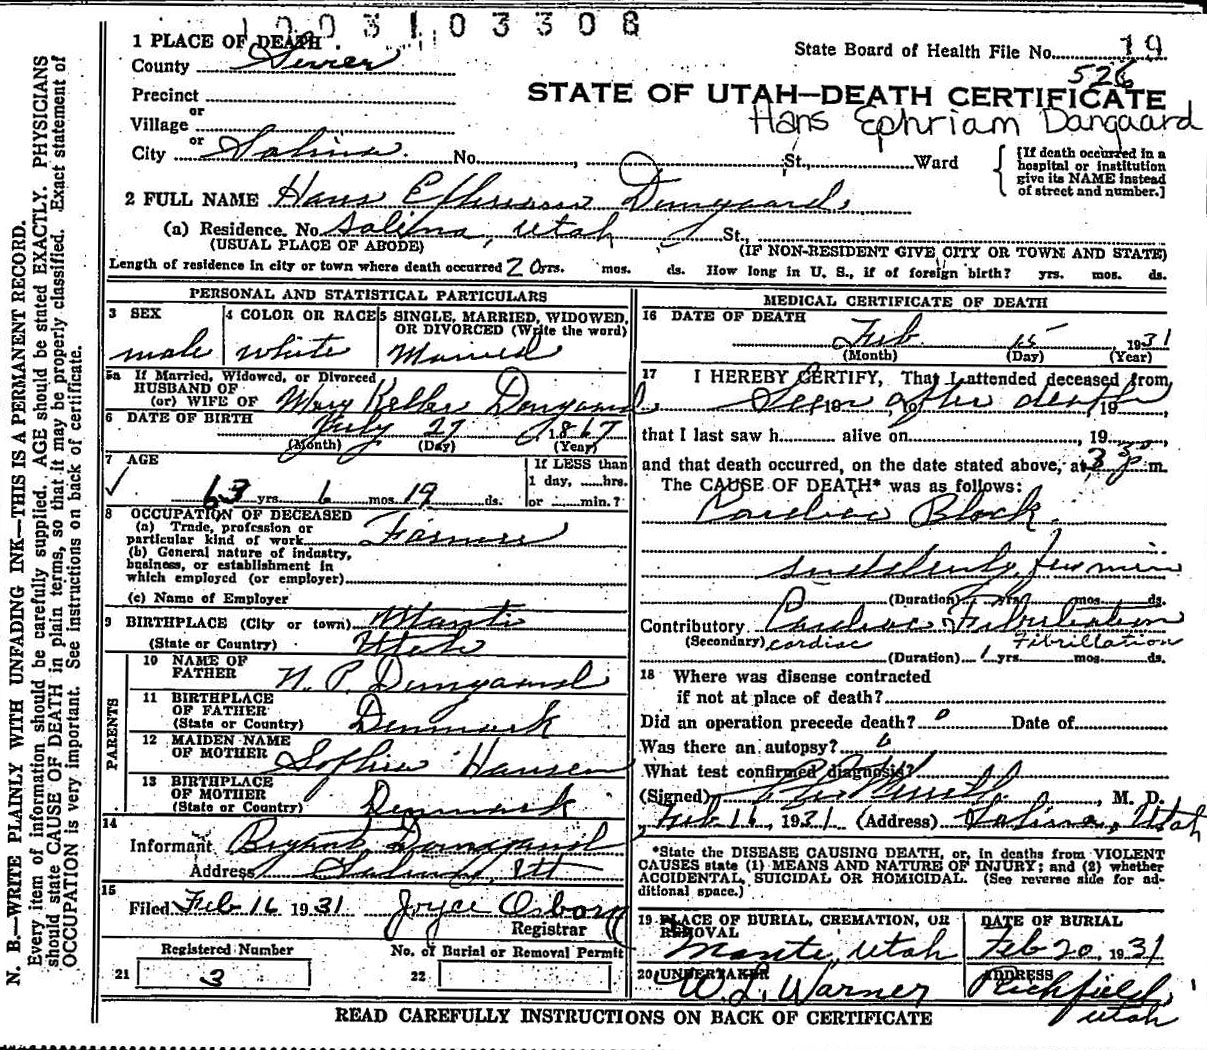 1003103308
1 PLACE OF DEATH
State Board of Health File No. 19
County Sevier
526
Precinct
STATE OF UTAH—DEATH CERTIFICATE
or
Hans Ephriam Dangaard
Village
or
City Salina. No. , St., Ward
[If death occurred in a hospital or institution give its NAME instead of street and number.]
2 FULL NAME Hans Ephriam Dungaard
(a) Residence. No. Salina, Utah St.,
(USUAL PLACE OF ABODE) (IF NON-RESIDENT GIVE CITY OR TOWN AND STATE)
Length of residence in city or town where death occurred 20 yrs. mos. ds. How long in U. S., if of foreign birth? yrs. mos. ds.
PERSONAL AND STATISTICAL PARTICULARS
3 SEX 4 COLOR OR RACE 5 SINGLE, MARRIED, WIDOWED,
OR DIVORCED (Write the word)
male white Married
5a If Married, Widowed, or Divorced
HUSBAND OF
(or) WIFE OF Mary Keller Dungaard
6 DATE OF BIRTH July 27 1867
(Month) (Day) (Year)
7 AGE If LESS than
1 day, hrs.
63 yrs. 6 mos. 19 ds. or min.?
8 OCCUPATION OF DECEASED
(a) Trade, profession or
particular kind of work Farmer
(b) General nature of industry,
business, or establishment in
which employed (or employer)
(c) Name of Employer
9 BIRTHPLACE (City or town) Manti
(State or Country) Utah
PARENTS
10 NAME OF
FATHER N. P. Dungaard
11 BIRTHPLACE
OF FATHER
(State or Country) Denmark
12 MAIDEN NAME
OF MOTHER Sophia Hansen
13 BIRTHPLACE
OF MOTHER
(State or Country) Denmark
14
Informant Bryant Dungaard
Address
15
Filed Feb 16 1931 Joyce Osborn
Registrar
Registered Number No. of Burial or Removal Permit
21 3 22
MEDICAL CERTIFICATE OF DEATH
16 DATE OF DEATH
Feb 15, 1931
(Month) (Day) (Year)
17 I HEREBY CERTIFY, That I attended deceased from
Seen after death
19 , to 19 ,
that I last saw h alive on , 19 ,
and that death occurred, on the date stated above, at 3 30 p. m.
The CAUSE OF DEATH* was as follows:
Cardiac Block.
suddenly few min
(Duration) yrs. mos. ds.
Contributory Cardiac Fibrillation
(Secondary) cardiac Fibrillation
(Duration) 1 yrs. mos. ds.
18 Where was disease contracted
if not at place of death?
Did an operation precede death? o Date of
Was there an autopsy?
What test confirmed diagnosis?
(Signed) , M. D.
, Feb 16, 1931 (Address) Salina, Utah
*State the DISEASE CAUSING DEATH, or, in deaths from VIOLENT
CAUSES state (1) MEANS AND NATURE OF INJURY; and (2) whether
ACCIDENTAL, SUICIDAL OR HOMICIDAL. (See reverse side for ad-
ditional space.)
19 PLACE OF BURIAL, CREMATION, OR REMOVAL DATE OF BURIAL
Manti, Utah Feb 20, 1931
20 UNDERTAKER ADDRESS
W. L. Warner Richfield, Utah
READ CAREFULLY INSTRUCTIONS ON BACK OF CERTIFICATE
N. B.—WRITE PLAINLY WITH UNFADING INK—THIS IS A PERMANENT RECORD.
Every item of information should be carefully supplied. AGE should be stated EXACTLY. PHYSICIANS
should state CAUSE OF DEATH in plain terms, so that it may be properly classified. Exact statement of
OCCUPATION is very important. See instructions on back of certificate.